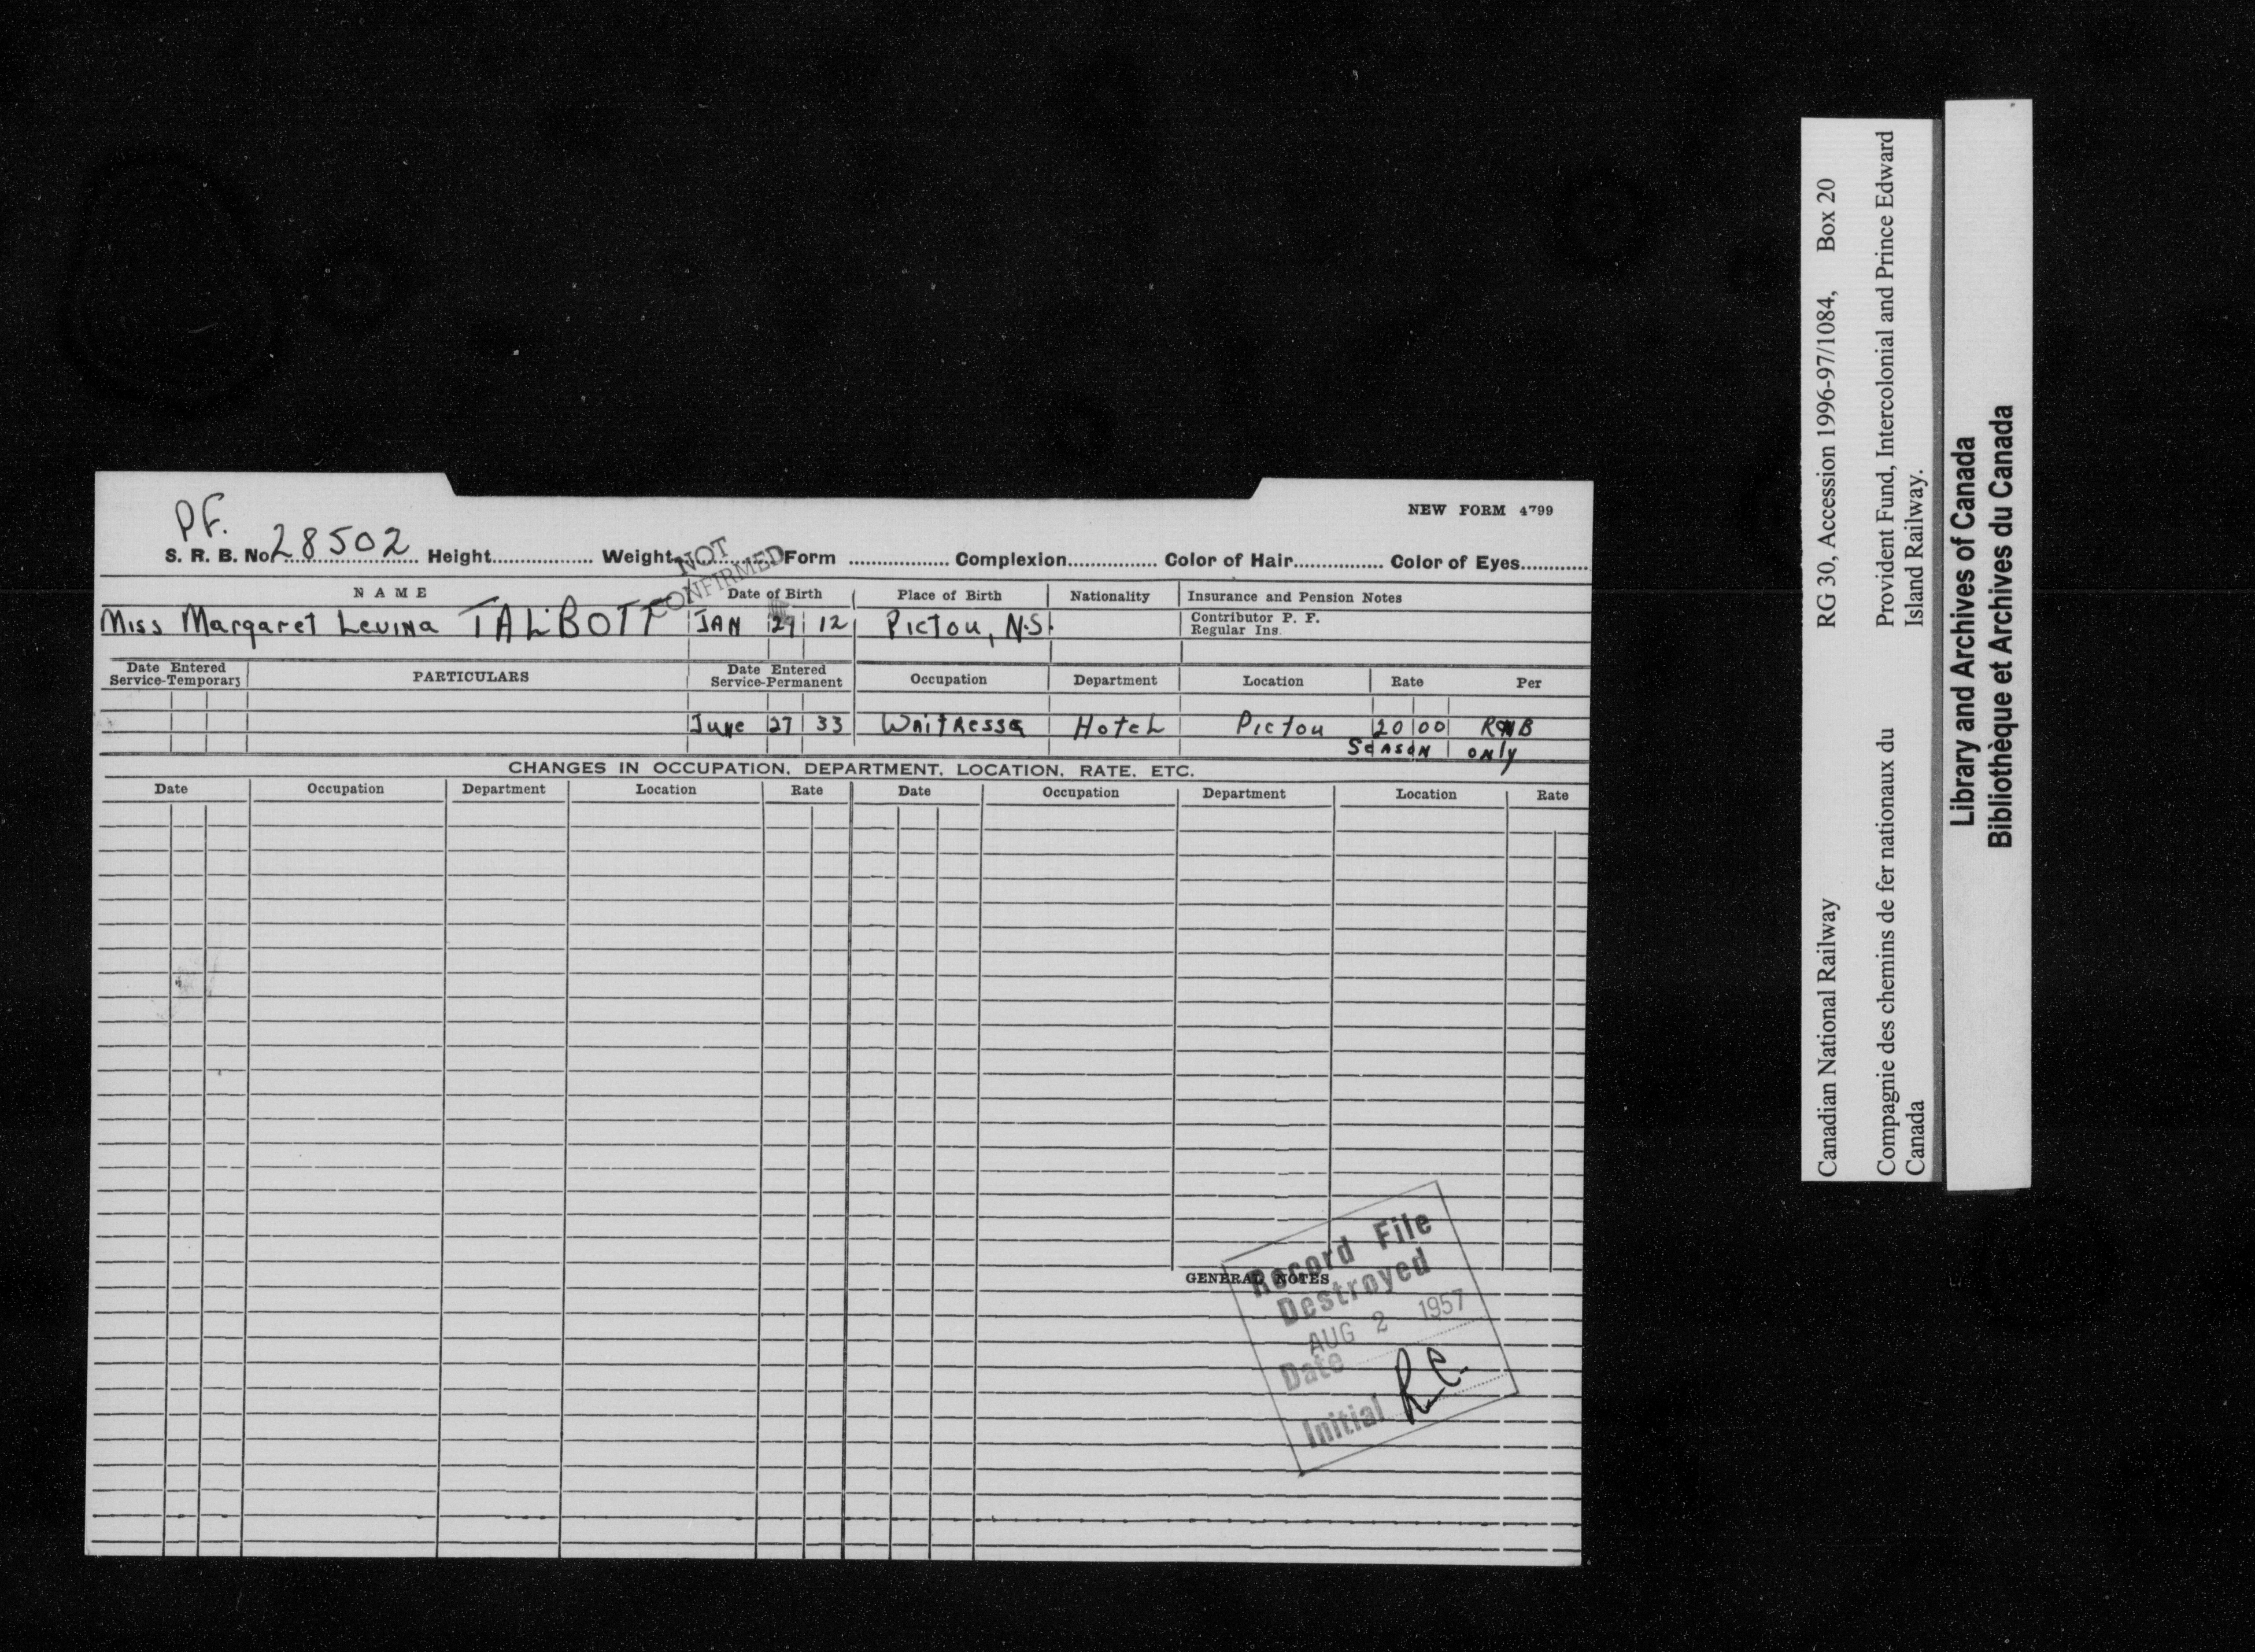 NEW FORM 4799
P.F.
S. R. B. No. 28502 Height Weight Form Complexion Color of Hair Color of Eyes
NOT
CONFIRMED
NAME Date of Birth Place of Birth Nationality Insurance and Pension Notes
Miss Margaret Levina TALBOTT JAN 29 12 Pictou, N.S. Contributor P. F.
Regular Ins.
Date Entered
Service-Temporary PARTICULARS Date Entered
Service-Permanent Occupation Department Location Rate Per
June 27 33 Waitress Hotel Pictou 20 00 R&B
Season only
CHANGES IN OCCUPATION, DEPARTMENT, LOCATION, RATE, ETC.
Date Occupation Department Location Rate Date Occupation Department Location Rate
GENERAL NOTES
Record File
Destroyed
AUG 2 1957
Date
Initial R.C.
Canadian National Railway RG 30, Accession 1996-97/1084, Box 20
Compagnie des chemins de fer nationaux du Provident Fund, Intercolonial and Prince Edward
Canada Island Railway.
Library and Archives of Canada
Bibliothèque et Archives du Canada